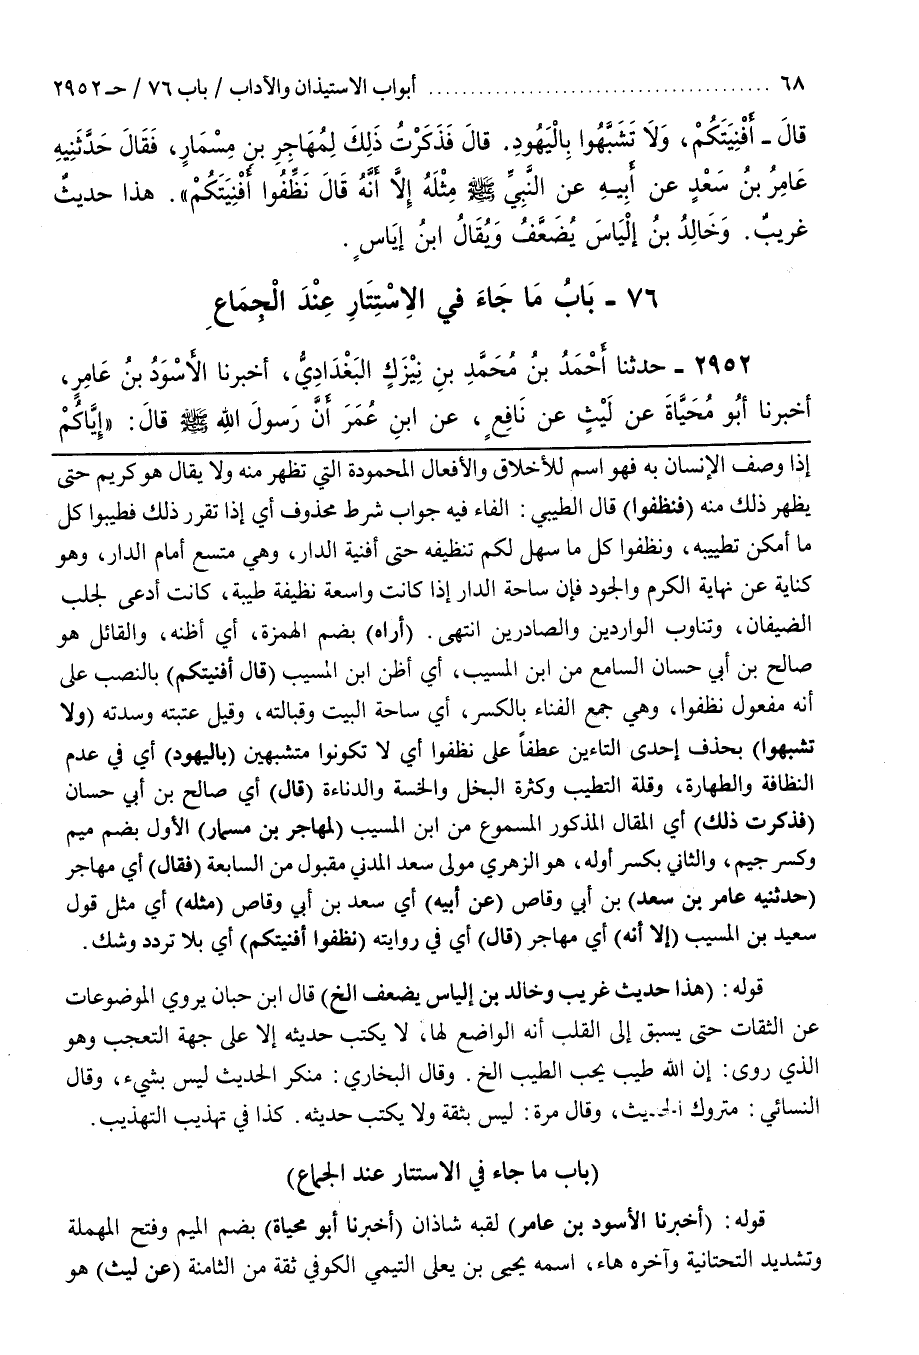 ٦٨ ........................................ أبواب الاستيذان والآداب / باب ٧٦ / حـ ٢٩٥٢
قالَ ـ أَفْنِيَتَكُمْ، وَلَا تَشَبَّهُوا بِالْيَهُودِ. قالَ فَذَكَرْتُ ذَلِكَ لِمُهَاجِرِ بنِ مِسْمَارٍ، فَقَالَ حَدَّثَنِيهِ
عَامِرُ بنُ سَعْدٍ عن أَبِيهِ عن النَّبيِّ ﷺ مِثْلَهُ إِلَّا أَنَّهُ قَالَ نَظِّفُوا أَفْنِيَتَكُمْ». هذا حديثٌ
غريبٌ. وَخَالِدُ بنُ إِلْيَاسَ يُضَعَّفُ وَيُقَالُ ابنُ إِيَاسٍ.
٧٦ ـ بَابُ مَا جَاءَ في الِاسْتِتَارِ عِنْدَ الْجِمَاعِ
٢٩٥٢ ـ حدثنا أَحْمَدُ بنُ مُحَمَّدِ بنِ نِيْزَكٍ البَغْدَادِيُّ، أخبرنا الأَسْوَدُ بنُ عَامِرٍ،
أخبرنا أَبُو مُحَيَّاةَ عن لَيْثٍ عن نَافِعٍ، عن ابنِ عُمَرَ أَنَّ رَسولَ اللهِ ﷺ قالَ: «إِيَّاكُمْ
إذا وصف الإنسان به فهو اسم للأخلاق والأفعال المحمودة التي تظهر منه ولا يقال هو كريم حتى
يظهر ذلك منه (فنظفوا) قال الطيبي: الفاء فيه جواب شرط محذوف أي إذا تقرر ذلك فطيبوا كل
ما أمكن تطييبه، ونظفوا كل ما سهل لكم تنظيفه حتى أفنية الدار، وهي متسع أمام الدار، وهو
كناية عن نهاية الكرم والجود فإن ساحة الدار إذا كانت واسعة نظيفة طيبة، كانت أدعى لجلب
الضيفان، وتناوب الواردين والصادرين انتهى. (أراه) بضم الهمزة، أي أظنه، والقائل هو
صالح بن أبي حسان السامع من ابن المسيب، أي أظن ابن المسيب (قال أفنيتكم) بالنصب على
أنه مفعول نظفوا، وهي جمع الفناء بالكسر، أي ساحة البيت وقبالته، وقيل عتبته وسدته (ولا
تشبهوا) بحذف إحدى التاءين عطفاً على نظفوا أي لا تكونوا متشبهين (باليهود) أي في عدم
النظافة والطهارة، وقلة التطيب وكثرة البخل والخسة والدناءة (قال) أي صالح بن أبي حسان
(فذكرت ذلك) أي المقال المذكور المسموع من ابن المسيب (لمهاجر بن مسمار) الأول بضم ميم
وكسر جيم، والثاني بكسر أوله، هو الزهري مولى سعد المدني مقبول من السابعة (فقال) أي مهاجر
(حدثنيه عامر بن سعد) بن أبي وقاص (عن أبيه) أي سعد بن أبي وقاص (مثله) أي مثل قول
سعيد بن المسيب (إلا أنه) أي مهاجر (قال) أي في روايته (نظفوا أفنيتكم) أي بلا تردد وشك.
قوله: (هذا حديث غريب وخالد بن إلياس يضعف الخ) قال ابن حبان يروي الموضوعات
عن الثقات حتى يسبق إلى القلب أنه الواضع لها، لا يكتب حديثه إلا على جهة التعجب وهو
الذي روى: إن الله طيب يحب الطيب الخ. وقال البخاري: منكر الحديث ليس بشيء، وقال
النسائي: متروك الحديث، وقال مرة: ليس بثقة ولا يكتب حديثه. كذا في تهذيب التهذيب.
(باب ما جاء في الاستتار عند الجماع)
قوله: (أخبرنا الأسود بن عامر) لقبه شاذان (أخبرنا أبو محياة) بضم الميم وفتح المهملة
وتشديد التحتانية وآخره هاء، اسمه يحيى بن يعلى التيمي الكوفي ثقة من الثامنة (عن ليث) هو